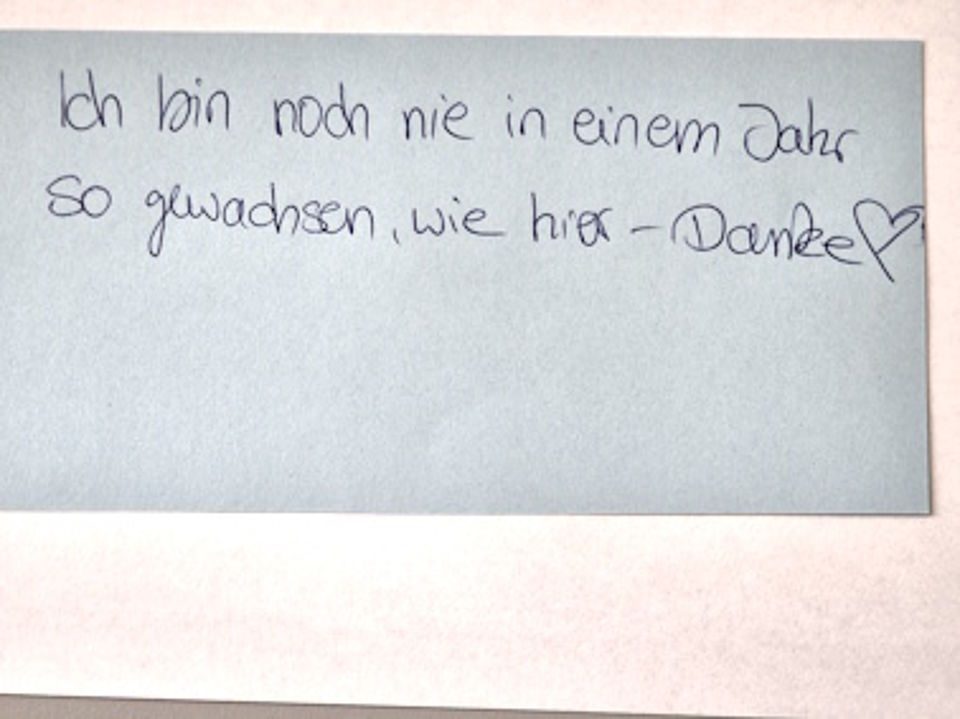 Ich bin noch nie in einem Jahr
so gewachsen, wie hier - Danke♡